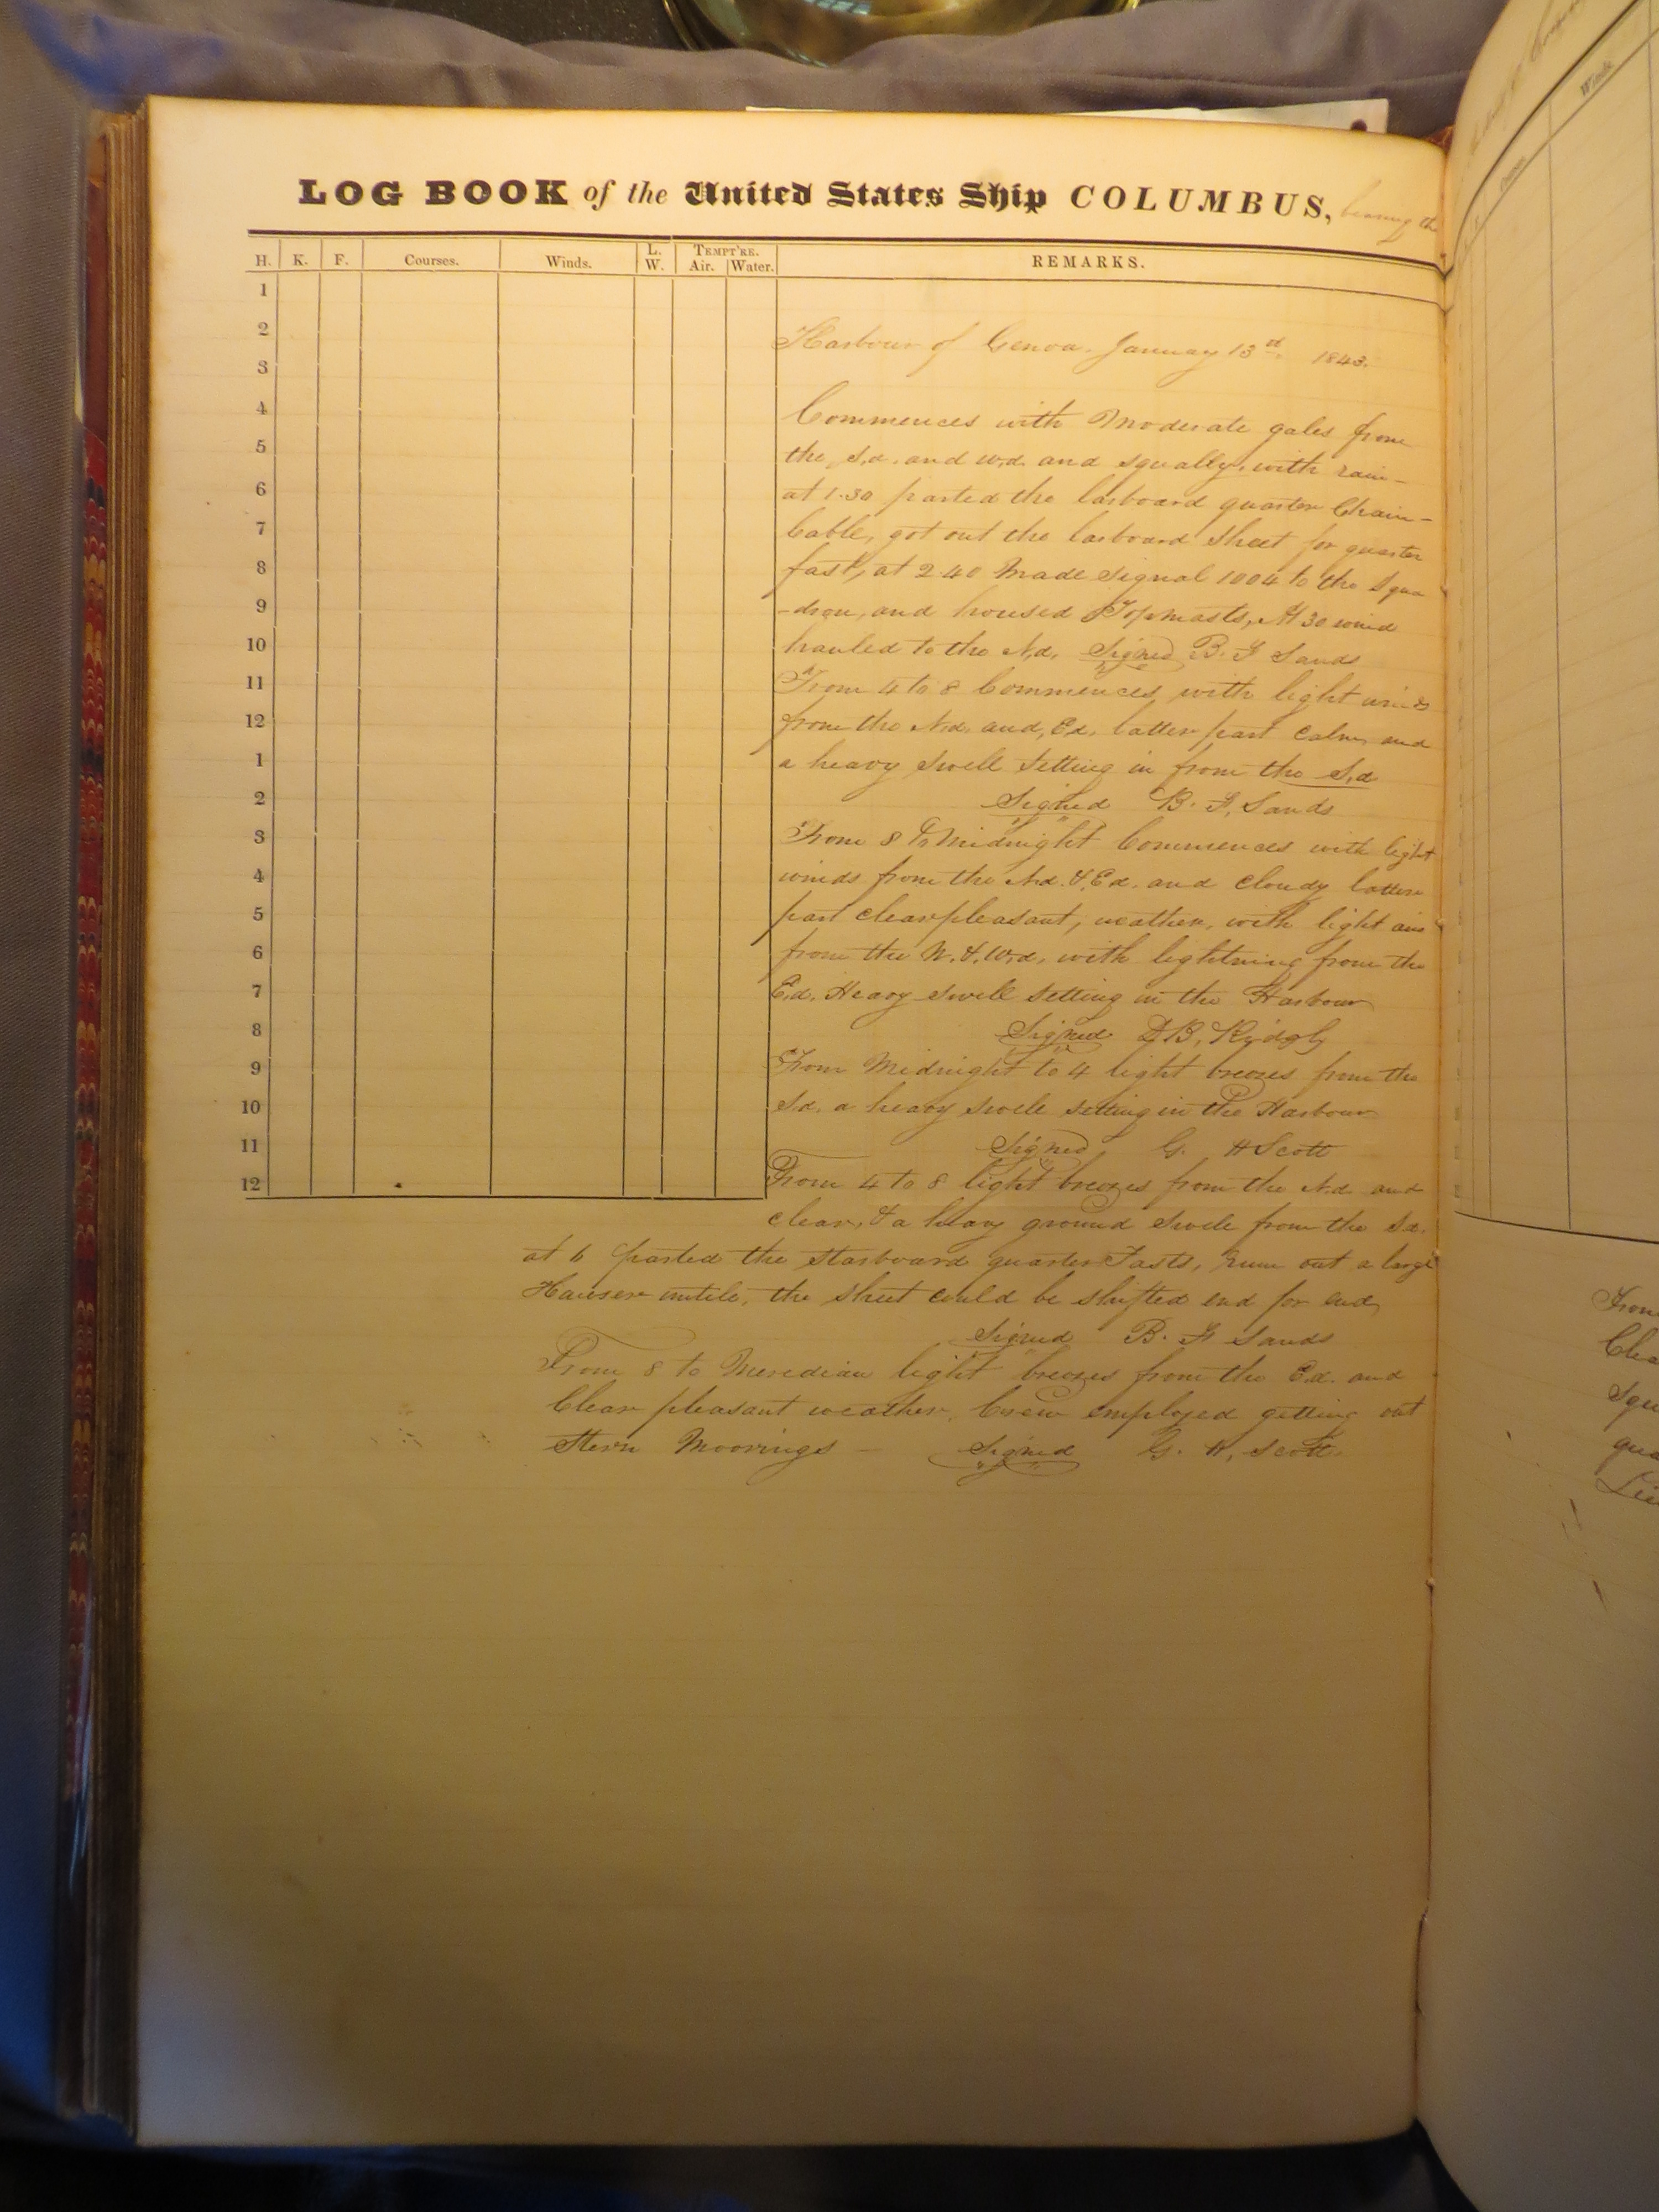 LOG BOOK of the United States Ship COLUMBUS, bearing th
H. K. F. Courses. Winds. L. W. TEMPT'RE. Air. Water. REMARKS.
1
2
Harbour of Genoa. January 13d 1843.
3
4
Commences with Moderate gales from
5
the S,d. and W,d. and squally, with rain -
6
at 1.30 parted the larboard quarter Chain -
7
Cable, got out the larboard Sheet for quarter
8
fast, at 2.40 Made Signal 1004 to the Squa
9
-dron, and housed Topmasts, At 30 wind
10
hauled to the N,d, Signed B. F Sands
11
From 4 to 8 Commences, with light winds
12
from the N.d. and, E.d. latter part Calm, and
1
a heavy swell Setting in from the S,d
2
Signed B. F. Sands
3
From 8 To Midnight Commences with light
4
winds from the N.d. & E.d. and Cloudy latter
5
part clear pleasant, weather, with light airs
6
from the N. & W.d, with lightning from the
7
E.d. Heavy swell Setting in the Harbour
8
Signed D B, Ridgly
9
From Midnight to 4 light breezes from the
10
S.d. a heavy swell setting in the Harbour
11
Signed G. H Scott
12
From 4 to 8 light breezes from the N.d and
clear, & a heavy ground swell from the S.d.
at 6 parted the starboard quarter Fasts, run out a large
Hauser untile, the sheet could be shifted end for end,
Signed B. F Sands
From 8 to Meredian light breezes from the E.d. and
Clear pleasant weather. Crew employed getting out
Stern Moorings - Signed G. H, Scott.
Winds
From
Clea
Squ
qua